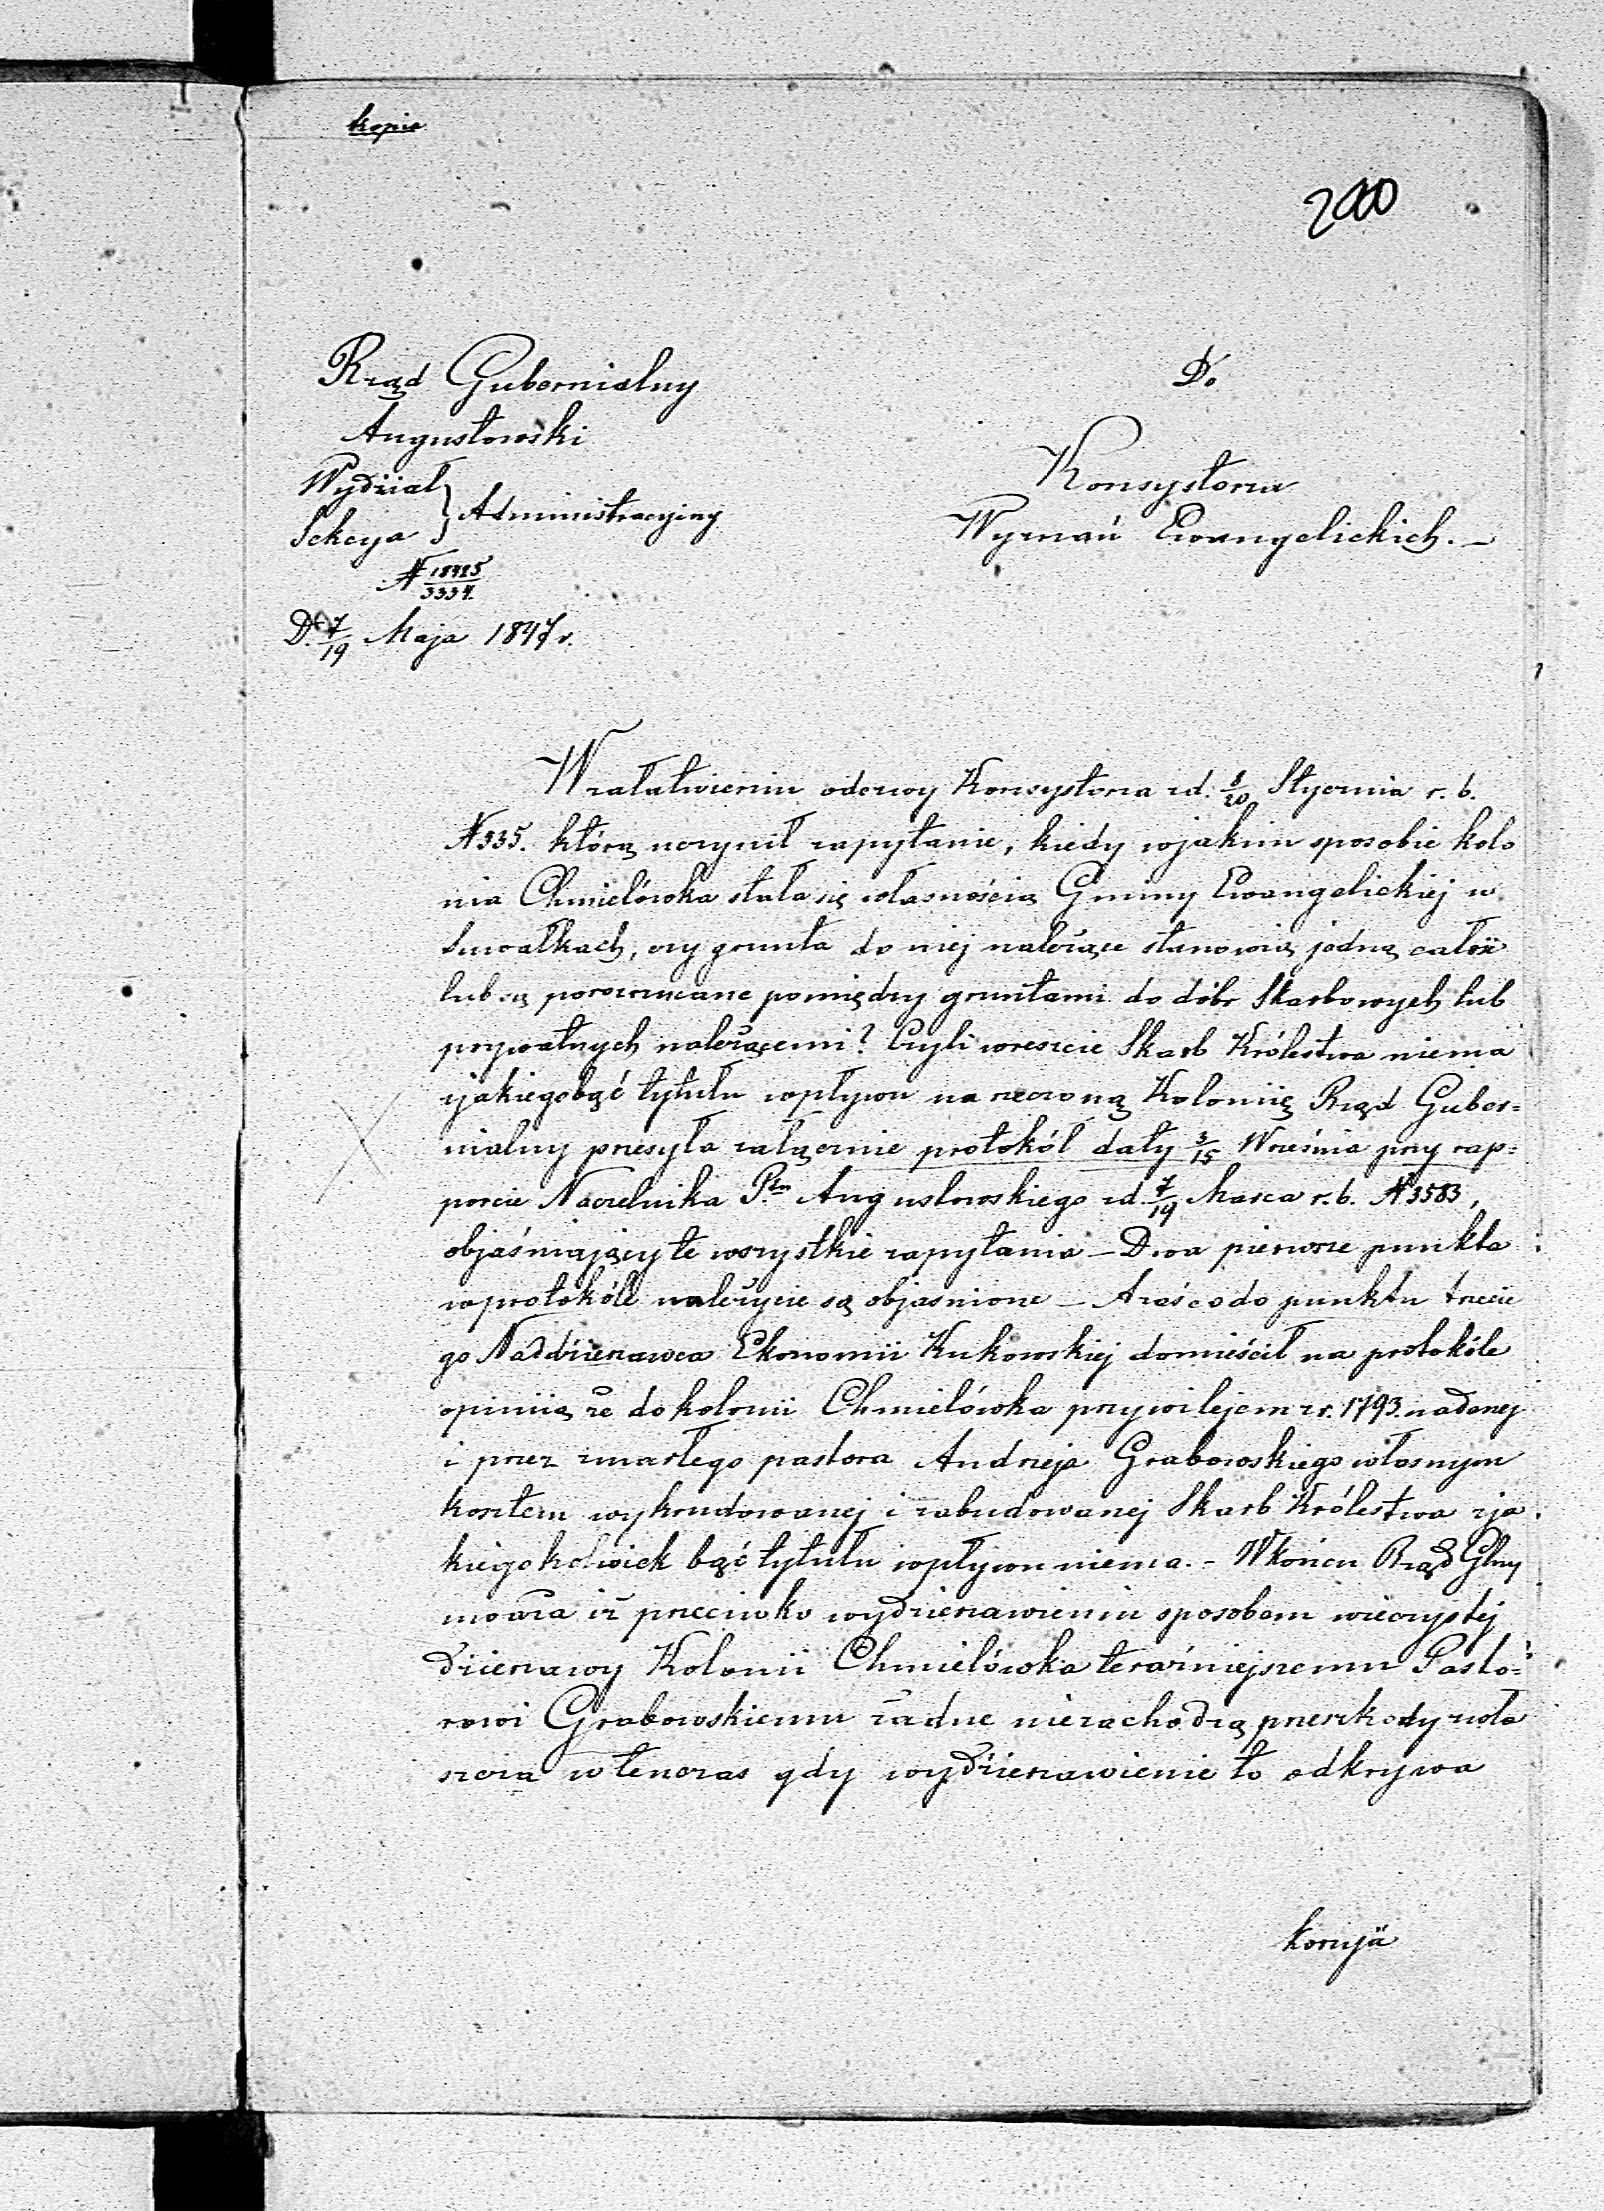 kopia
200
Rząd Gubernialny
Augustowski
Wydział
Sekcya } Administracyjny
N 18425/3334.
D. 7/19 Maja 1847 r.
Do
Konsystorza
Wyznań Ewangelickich. —
W załatwieniu odezwy Konsystorza zd. 8/20 Stycznia r. b.
N 335. którą uczynił zapytanie, kiedy wjakim sposobie kolo
nia Chmielówka stała się własnością Gminy Ewangelickiej w
Suwałkach, czy grunta do niej należące stanowią jedną całość
lub są porozrzucane pomiędzy gruntami do dóbr Skarbowych lub
prywatnych należącemi? Czyli wreszcie Skarb Królestwa niema
zjakiegobąć tytułu wpływu na rzeczoną Koloniię Rząd Guber=
nialny przesyła załącznie protokół daty 3/15 Września przy rap=
porcie Naczelnika Ptu Augustowskiego zd. 7/19 Marca r. b. N 3583,
objaśniający te wszystkie zapytania — Dwa pierwsze punkta
wprotokóle należycie są objasnione — A zaś co do punktu trzecie
go Naddzierżawca Ekonomii Kukowskiej domieścił na protokóle
opiniią że do kolonii Chmielówka przywilejem z r. 1793. nadanej
i przez zmarłego pastora Andrzeja Grabowskiego własnym
kosztem wykrudowanej i zabudowanej Skarb Królestwa zja
kiegokolwiek bąć tytułu wpływu niema. — Wkońcu Rząd Glny
uważa iż przeciwko wydzierżawieniu sposobem wieczystej
dzierżawy Kolonii Chmielówka teraźniejszemu Pasto=
rowi Grabowskiemu żadne niezachodzą przeszkody zwła
szcza wtenczas gdy wydzierżawienie to odkrywa